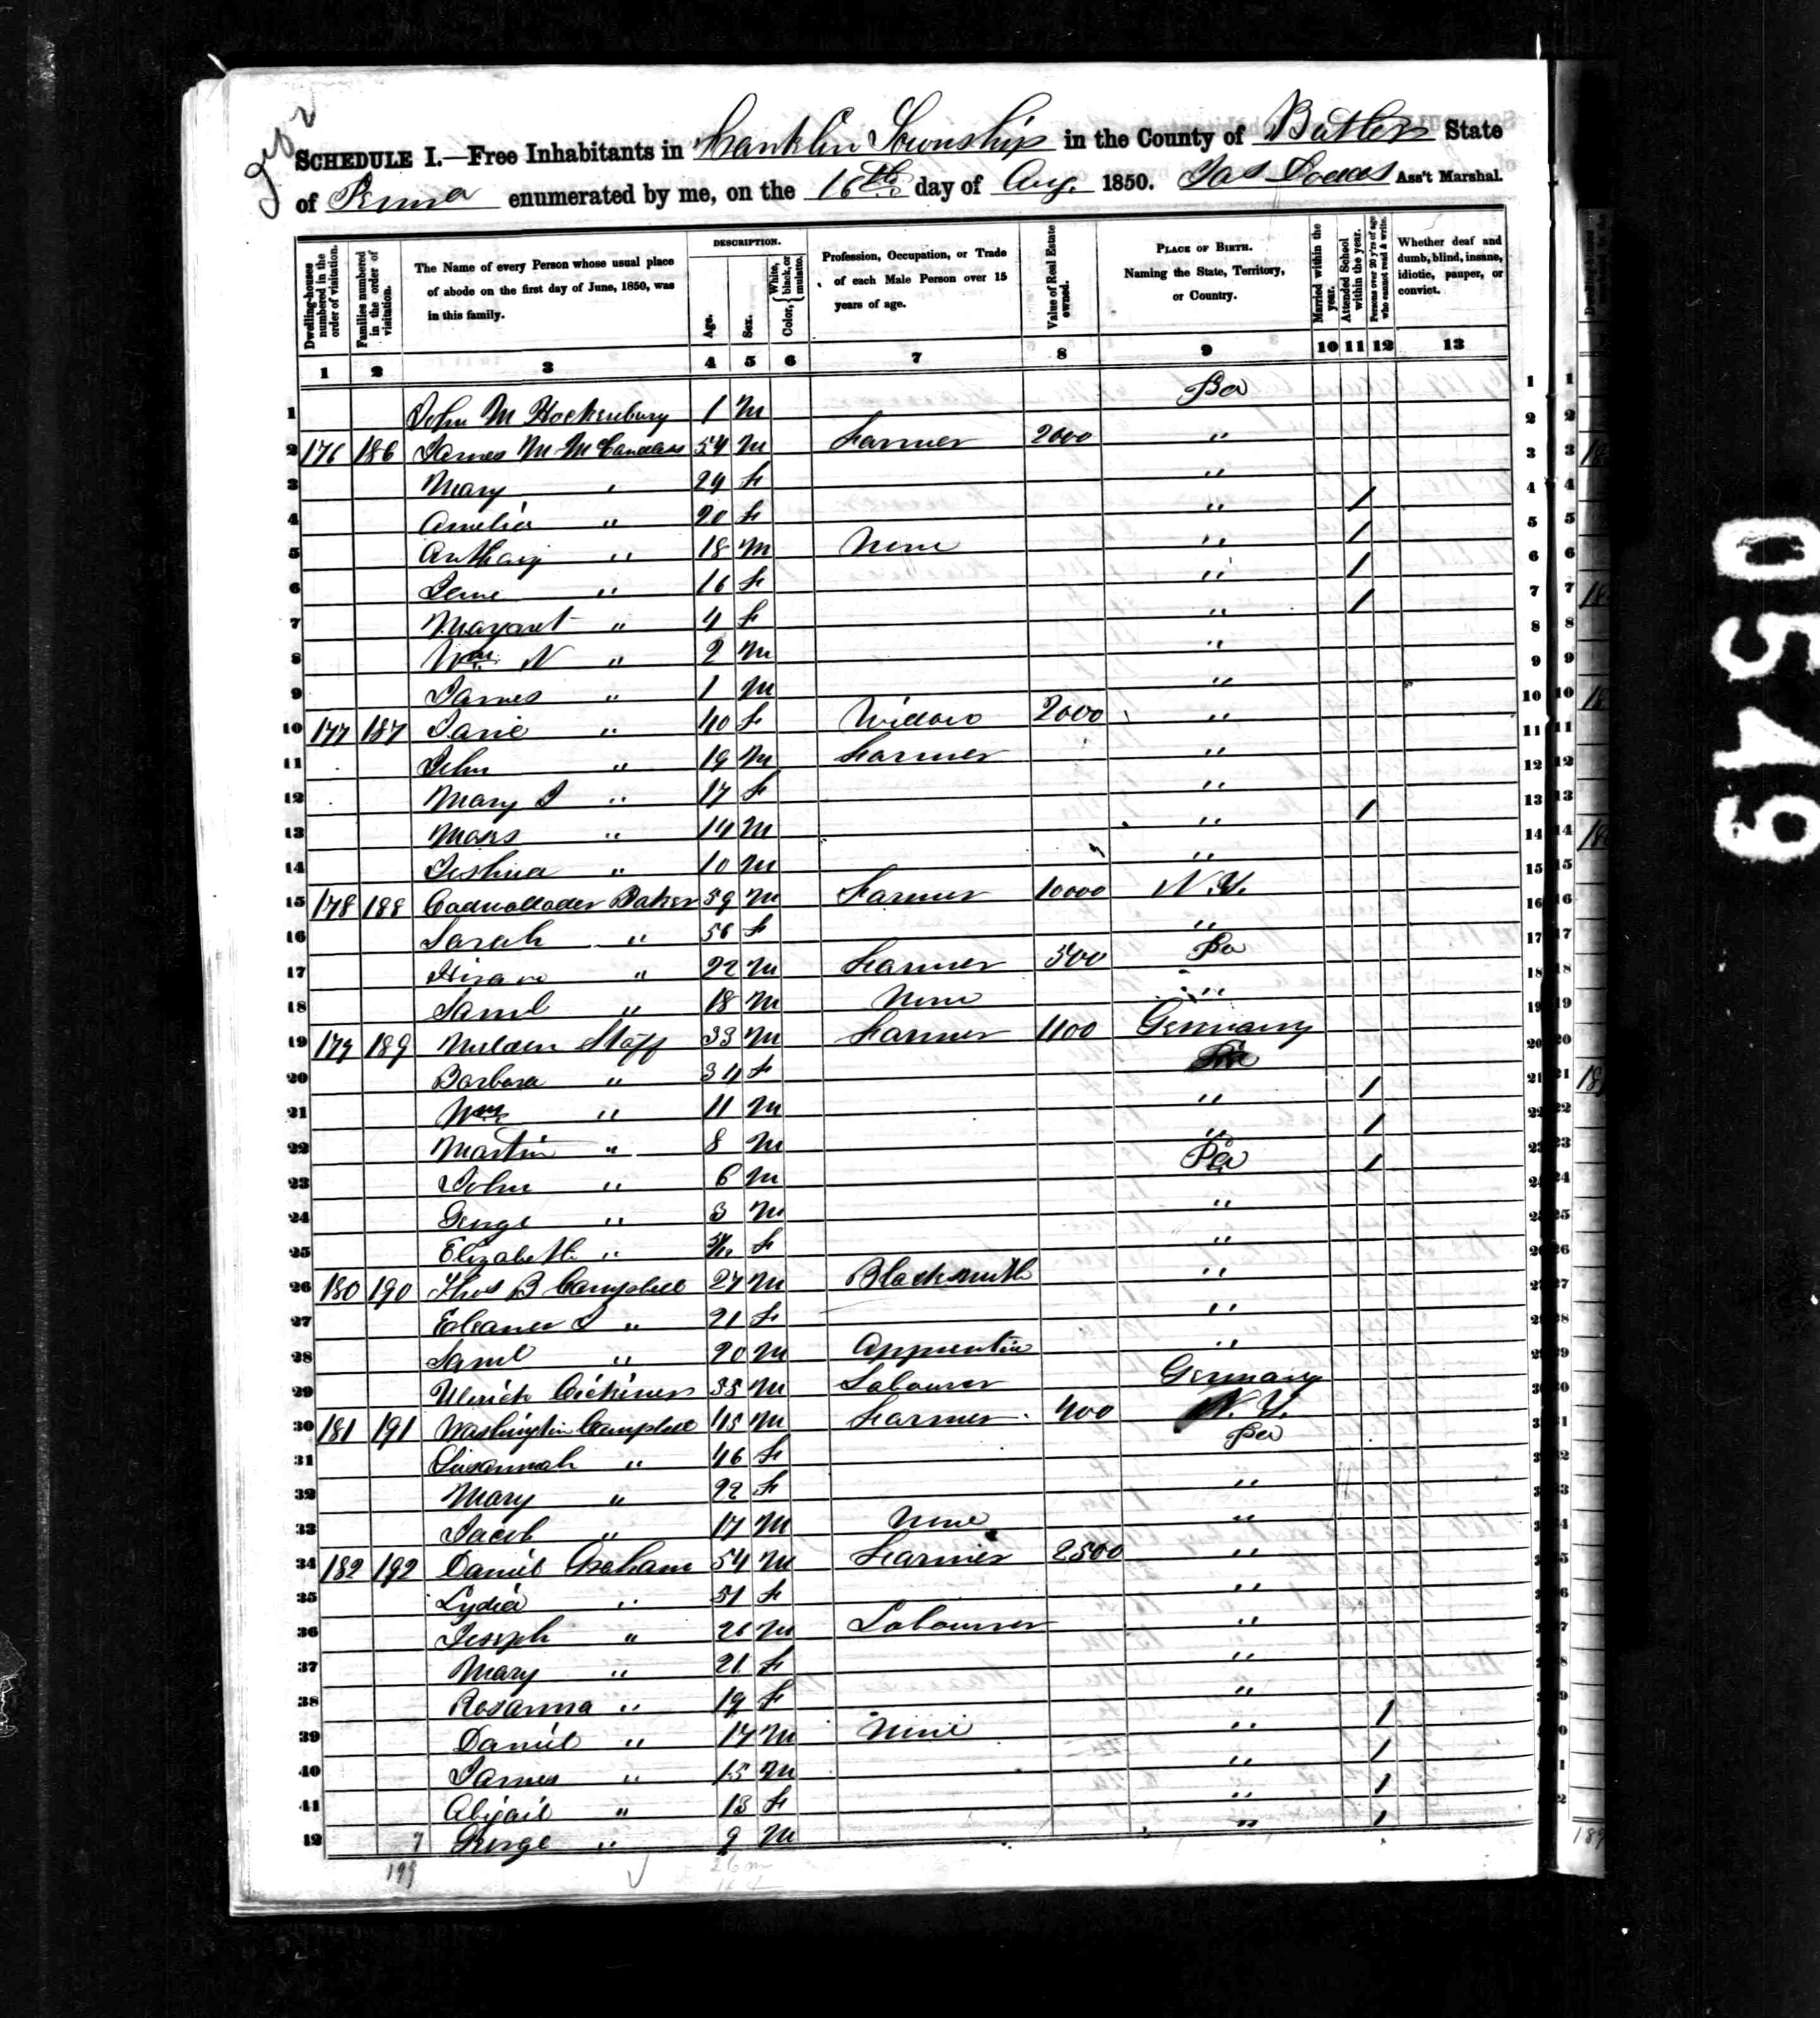 SCHEDULE I.—Free Inhabitants in Franklin Township in the County of Butler State
of Penna enumerated by me, on the 16th day of Aug. 1850. Jas Ass't Marshal.
Dwelling-houses numbered in the order of visitation.
Families numbered in the order of visitation.
The Name of every Person whose usual place of abode on the first day of June, 1850, was in this family.
DESCRIPTION.
Age.
Sex.
Color, { White, black, or mulatto.
Profession, Occupation, or Trade of each Male Person over 15 years of age.
Value of Real Estate owned.
PLACE OF BIRTH. Naming the State, Territory, or Country.
Married within the year.
Attended School within the year.
Persons over 20 y'rs of age who cannot read & write.
Whether deaf and dumb, blind, insane, idiotic, pauper, or convict.
1 2 3 4 5 6 7 8 9 10 11 12 13
1 John M Hockenbury 1 M Pa 1
2 176 186 James M McCandless 54 M Farmer 2000 " 2
3 Mary " 29 F " 3
4 Amelia " 20 F " / 4
5 Anthony " 18 M None " / 5
6 Jane " 16 F " / 6
7 Margaret " 4 F " / 7
8 Wm N " 2 M " 8
9 James " 1 M " 9
10 177 187 Jane " 40 F Widow 2000 " 10
11 John " 19 M Farmer " 11
12 Mary J " 17 F " 12
13 " 14 M " / 13
14 Joshua " 10 M " 14
15 178 188 Cadwallader Baker 59 M Farmer 10000 N.Y. 15
16 Sarah " 56 F " 16
17 Hiram " 22 M Farmer 500 Pa 17
18 Saml " 18 M None " 18
19 179 189 33 M Farmer 1100 Germany 19
20 Barbara " 34 F 20
21 Wm " 11 M " / 21
22 Martin " 8 M " / 22
23 John " 6 M Pa / 23
24 George " 3 M "
25 Elizabeth " F "
26 180 190 Thos B Campbell 27 M Blacksmith "
27 Eleanor J " 21 F "
28 Saml " 20 M Apprentice "
29 Ulrich 35 M Labourer Germany
30 181 191 Washington Campbell 45 M Farmer 400 N.Y.
31 Susannah " 46 F Pa
32 Mary " 22 F "
33 Jacob " 17 M None "
34 182 192 Daniel Graham 54 M Farmer 2500 "
35 Lydia " 51 F "
36 Joseph " 26 M Labourer "
37 Mary " 21 F "
38 Rosanna " 19 F " /
39 Daniel " 17 M None " /
40 James " 15 M " /
41 Abigail " 13 F " /
42 George " 9 M "
199
0549